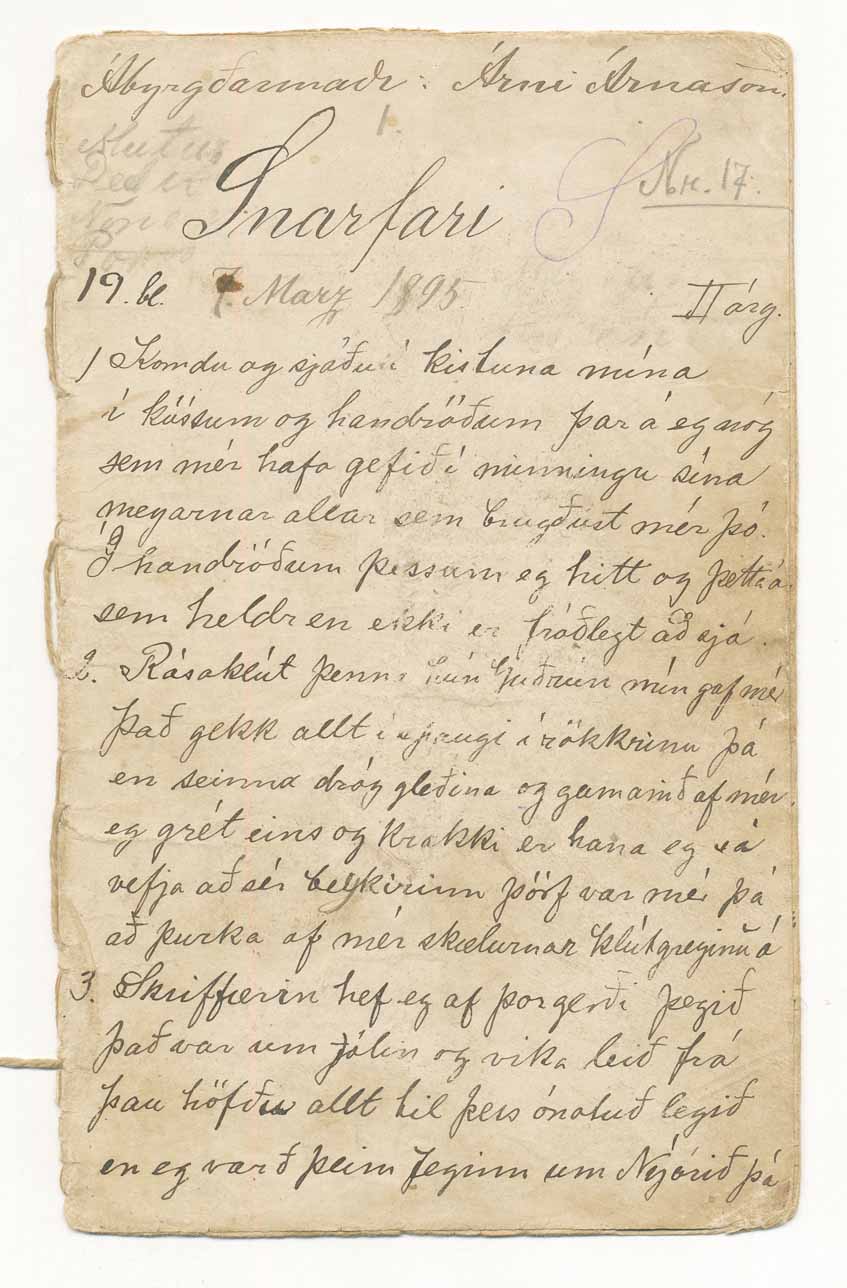 Ábyrgðarmaðr: Árni Árnason.
1.
Snarfari
Nr. 17.
19. bl. 7. Marz 1895 II árg.
1 Komdu og sjáðu í kistuna mína
í kössum og handröðum þar á eg nóg
sem mér hafa gefið í minningu sína
meyarnar allar sem brugðust mér þó.
Í handröðum þessum eg hitt og þetta á
sem heldr en ekki er fróðlegt að sjá.
2. Rósaklút þenn hún Guðrún mín gaf mér
Það gekk allt í spaugi í rökkrinu þá
en seinna dróg gleðina og gamanið af mér.
eg grét eins og krakki er hana eg sá
vefja að sér beykirinn þörf var mér þá
að þurka af mér skælurnar klútgreyinu á
3. Skriffærin hef eg af Þorgerði þegið
það var um Jólin og vika leið frá
þau höfðu allt til þess ónotuð legið
en eg varð þeim feginn um Nýárið þá